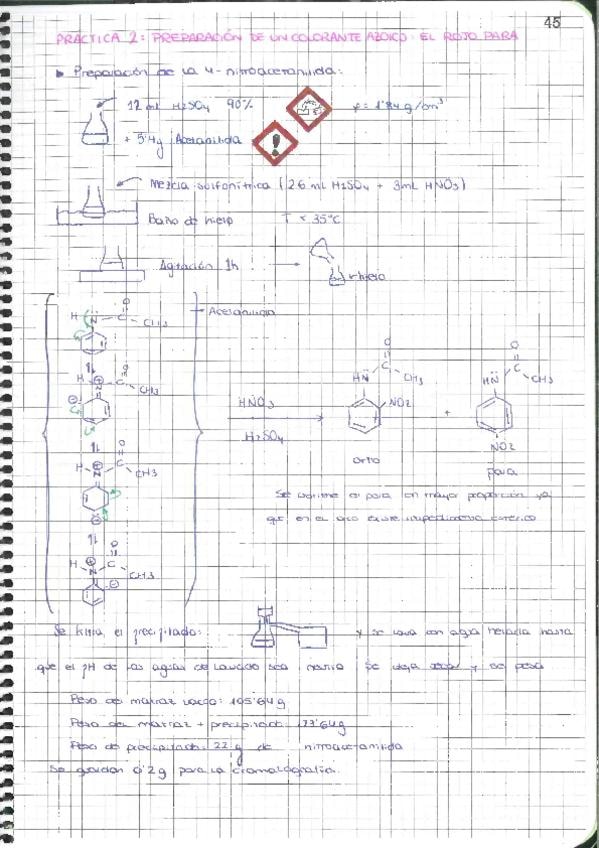 45
PRÁCTICA 2: PREPARACIÓN DE UN COLORANTE AZOICO: EL ROJO PARA
Preparación de la 4-nitroacetanilida:
12 ml H2SO4 90%
ρ = 1'84 g/cm3
+ 5'4g Acetanilida
Mezcla sulfonítrica (2'6 mL H2SO4 + 3mL HNO3)
Baño de hielo T < 35°C
Agitación 1h → + hielo
Acetanilida
H N C O CH3
H N C O CH3
H N C O CH3
H N C O CH3
HNO3
H2SO4
HN C O CH3 NO2
orto
+
HN C O CH3 NO2
para
Se obtiene el para en mayor proporción ya
que en el orto existe impedimento estérico
Se filtra el precipitado:
y se lava con agua helada hasta
que el pH de las aguas de lavado sea Se deja y se pesa
Peso del matraz vacío: 105'64g
Peso del matraz + precipitado:
Peso de precipitado: 22 g de nitroacetanilida
Se guardan 0'2g para la cromatografía.